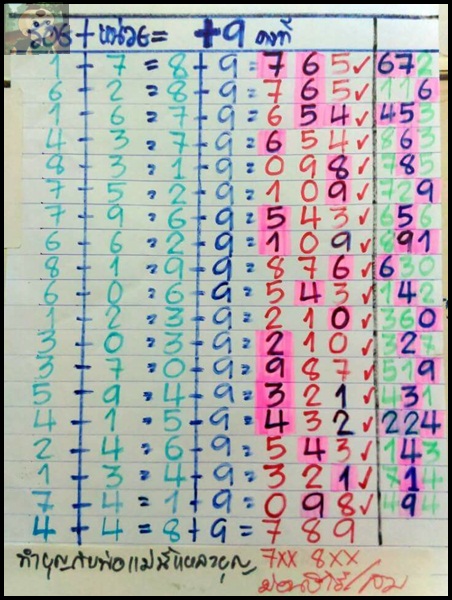 ร้อย + หน่วย = +9 คงที่
1 + 7 = 8 + 9 = 7 6 5 ✓ 672
6 - 2 = 8 - 9 = 7 6 5 ✓ 116
1 - 6 = 7 - 9 = 6 5 4 ✓ 453
4 - 3 = 7 - 9 = 6 5 4 ✓ 863
8 - 3 = 1 - 9 = 0 9 8 ✓ 785
7 - 5 = 2 - 9 = 1 0 9 ✓ 729
7 - 9 = 6 - 9 = 5 4 3 ✓ 656
6 - 6 = 2 - 9 = 1 0 9 ✓ 891
8 - 1 = 9 - 9 = 8 7 6 ✓ 630
6 - 0 = 6 - 9 = 5 4 3 ✓ 142
1 - 2 = 3 - 9 = 2 1 0 ✓ 360
3 - 0 = 3 - 9 = 2 1 0 ✓ 327
3 - 7 = 0 - 9 = 9 8 7 ✓ 519
5 - 9 = 4 - 9 = 3 2 1 ✓ 431
4 - 1 = 5 - 9 = 4 3 2 ✓ 224
2 - 4 = 6 - 9 = 5 4 3 ✓ 143
1 - 3 = 4 - 9 = 3 2 1 ✓ 714
7 - 4 = 1 + 9 = 0 9 8 ✓ 494
4 + 4 = 8 + 9 = 7 8 9
ทำบุญกับพ่อแม่ 7xx 8xx